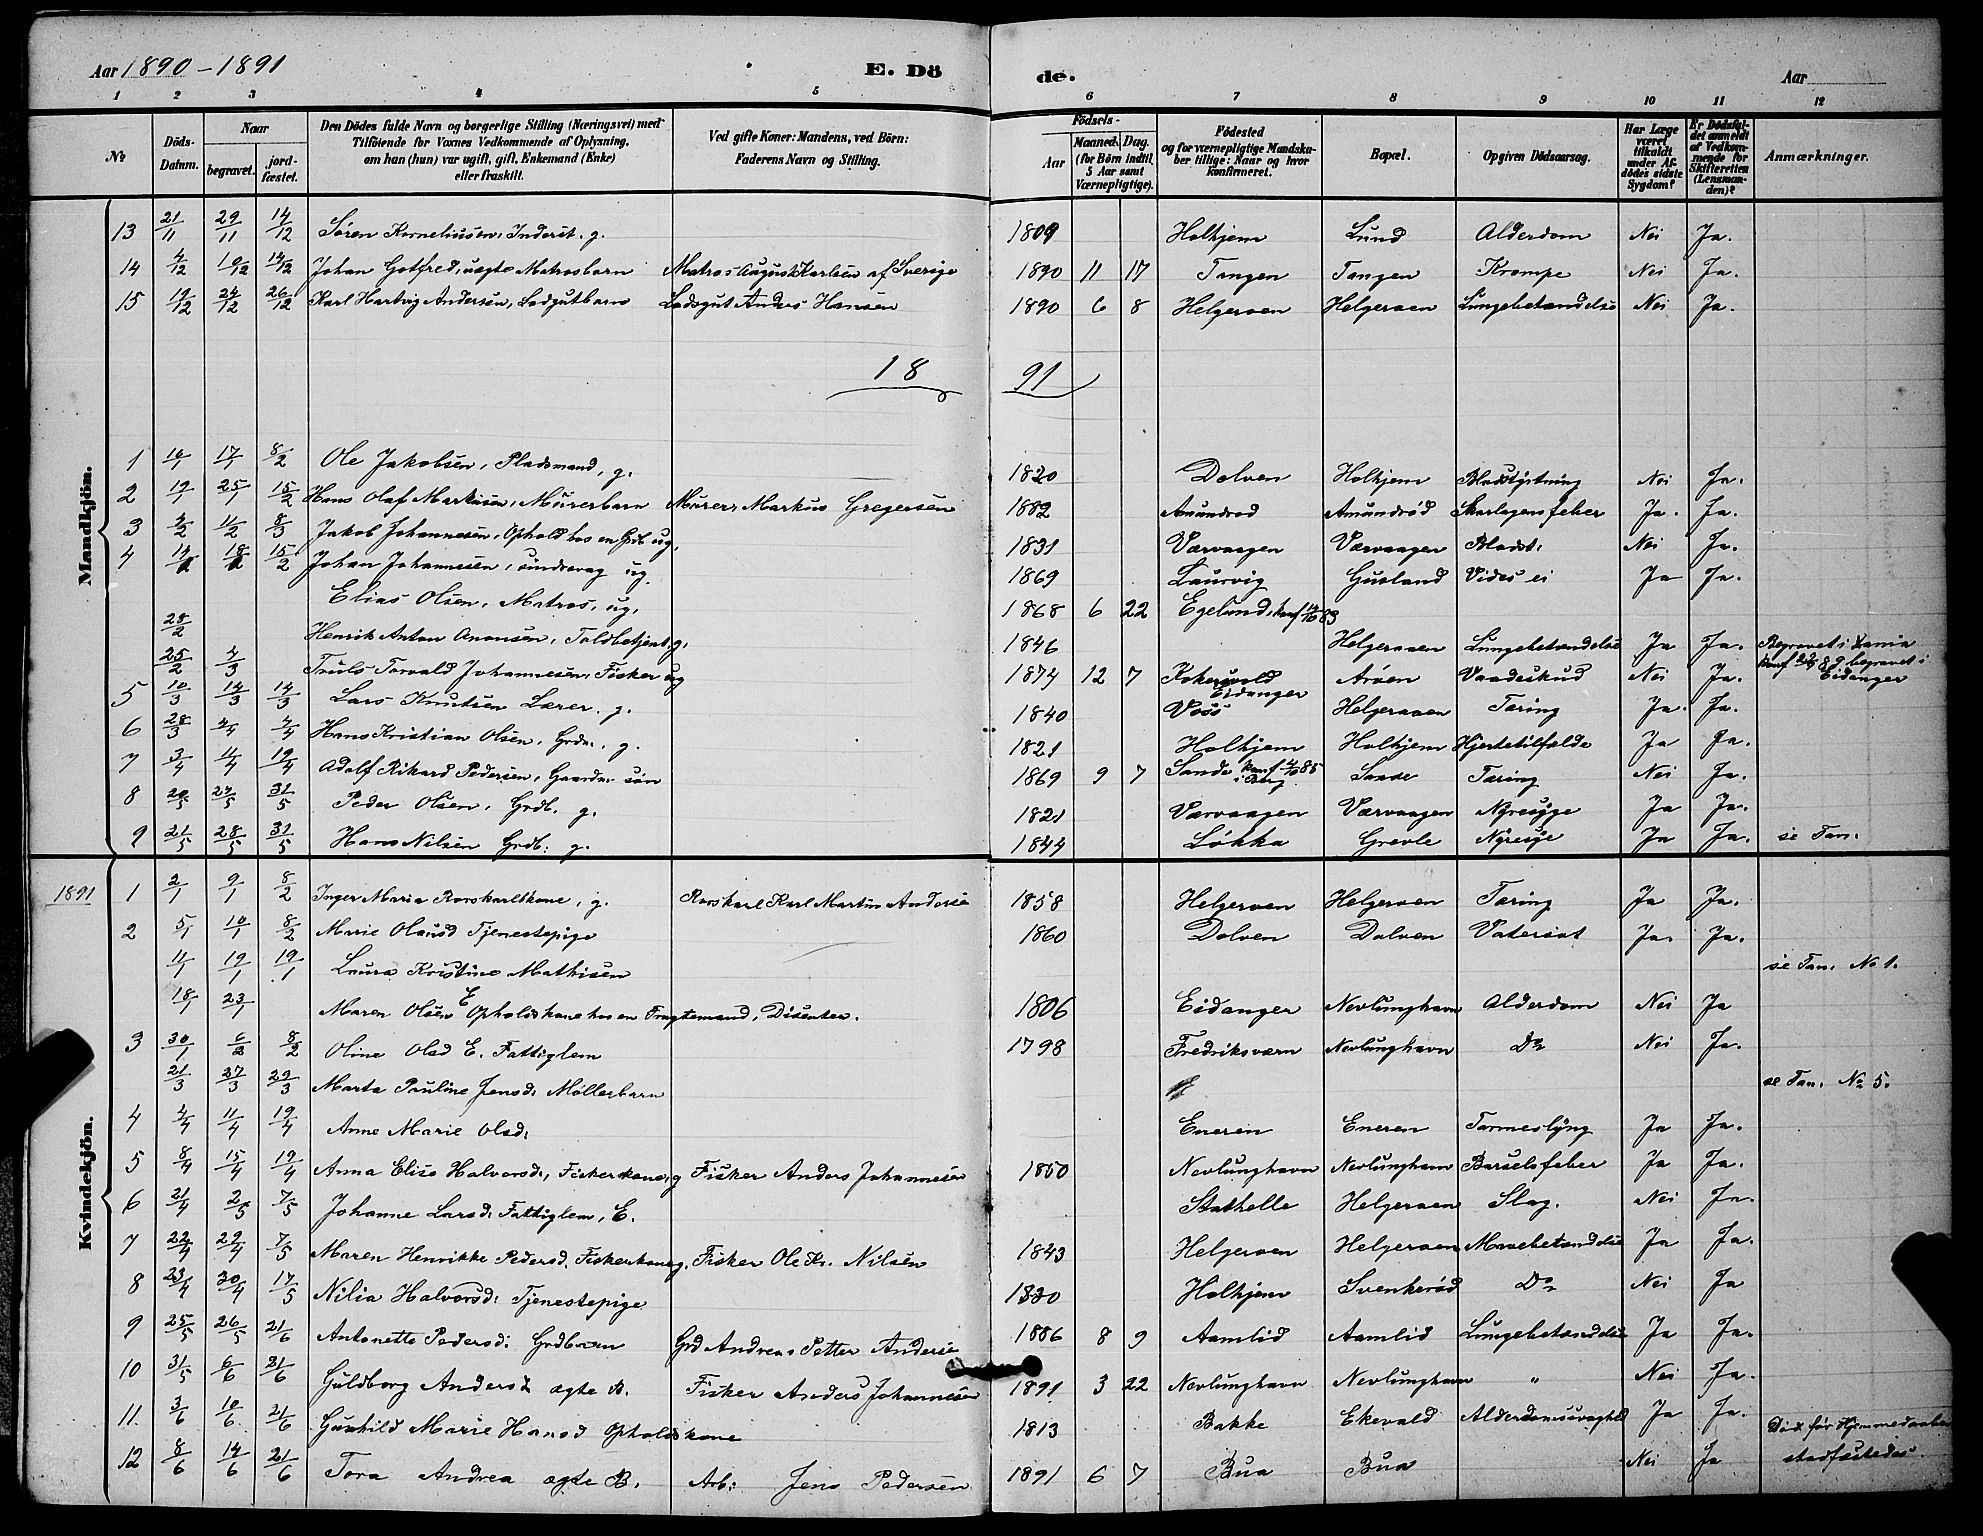 Aar 1890-1891 E. Dö de. Aar
1 2 3 4 5 6 7 8 9 10 11 12
№ Döds-Datum. Naar begravet. jord-fæstet. Den Dödes fulde Navn og borgerlige Stilling (Næringsvei) med Tilföiende for Voxnes Vedkommende af Oplysning, om han (hun) var ugift, gift, Enkemand (Enke) eller fraskilt. Ved gifte Koner: Mandens, ved Börn: Faderens Navn og Stilling. Födsels- Aar Maaned. Dag. (for Börn indtil 5 Aar samt Værnepligtige). Födested og for værnepligtige Mandskaber tillige: Naar og hvor konfirmeret. Bopæl. Opgiven Dödsaarsag. Har Læge været tilkaldt under Afdödes sidste Sygdom? Er Dödsfaldet anmeldt af Vedkommende for Skifteretten (Lensmanden)? Anmærkninger.
Mandkjön.
13 21/11 29/11 14/12 Søren Korneliussen, Inderst. g. 1809 Holhjem Lund Alderdom Nei Ja.
14 4/12 10/12 14/12 Johan Gotfred, uægte Matrosbarn Matros August Karlsen af Sverige 1890 11 17 Tangen Tangen Krampe Nei Ja.
15 19/12 24/12 26/12 Karl Hartvig Andersen, Lodsgutbarn Lodsgut Anders Hansen 1890 6 8 Helgeraaen Helgeraaen Lungebetændelse Nei Ja.
18 91
1 10/1 17/1 8/2 Ole Jakobsen, Pladsmand, g. 1820 Dolven Holhjem Blodstyrtning Nei Ja.
2 19/1 25/1 15/2 Hans Olaf Markusen, Murerbarn Murer Markus Gregersen 1882 Amundrød Amundrød Skarlagensfeber Ja. Ja.
3 4/2 11/2 8/3 Jakob Johannesen, Ophold hos en Grdb ug. 1831 Værvaagen Værvaagen Blodst. Nei Ja.
4 14/2 18/2 15/2 Johan Johannesen, sindssvag ug. 1869 Laurvig Gusland Vides ei Ja Ja.
Elias Olsen, Matros, ug. 1868 6 22 Egelund, konf 14/10 83
28/2 Henrik Anton Anonsen, Toldbetjent, g. 1846 Helgeraaen Lungebetændelse Ja Ja. Begravet i Xania
25/2 4/3 Truls Torvald Johannesen, Fisker ug 1874 12 7 Kokersvold Eidanger Arøen Vaadeskud Nei Ja. begravet i Eidanger
5 10/3 14/3 14/3 Lars Knutsen Lærer. g. 1840 Voss Helgeraaen Tæring Ja. Ja.
6 28/3 4/4 4/4 Hans Kristian Olsen, Grdbr., g. 1821 Holhjem Holhjem Hjertetilfælde Ja Ja.
7 3/4 11/4 19/4 Adolf Rikard Pedersen, Gaardbr søn 1869 9 7 Sande konf 4/10 85 i Berg Sande Tæring Nei Ja.
8 20/5 27/5 31/5 Peder Olsen, Grdb. g. 1821 Værvaagen Værvaagen Nyresyge Ja Ja.
9 21/5 28/5 31/5 Hans Nilsen Grdb. g. 1844 Løkka Grevle Nyresyge Ja Ja. se Tan.
Kvindekjön.
1891 1 2/1 9/1 8/2 Inger Maria Rorskarlskone, g. Rorskarl Karl Martin Anderse 1858 Helgeraaen Helgeraaen Tæring Ja Ja.
2 5/1 10/1 8/2 Marie Olausd Tjenestepige 1860 Dolven Dolven Vatersot Ja. Ja.
11/1 19/1 19/1 Laura Kristine Mathisen se Tan. No 1.
18/1 23/1 Maren Olsen E Opholdskone hos en Fragtemand, Dissenter. 1806 Eidanger Nevlunghavn Alderdom Nei Ja
3 30/1 6/2 8/2 Oline Olsd E. Fattiglem 1798 Fredriksværn Nevlunghavn Do Nei Ja.
21/3 27/3 29/3 Marta Pauline Jensd. Møllerbarn se Tan. No 5.
4 4/4 11/4 19/4 Anne Marie Olsd. Eneren Eneren Tarmeslyng Ja Ja.
5 8/4 15/4 19/4 Anna Elise Halvorsd., Fiskerkone, g Fisker Anders Johannesen 1850 Nevlunghavn Nevlunghavn Barselsfeber Ja Ja.
6 21/4 2/5 7/5 Johanne Larsd. Fattiglem, E. Stathelle Helgeraaen Slag. Nei Ja.
7 22/4 29/4 7/5 Maren Henrikke Pedersd. Fiskerkone g. Fisker Ole Kr. Nilsen 1843 Helgeraaen Helgeraaen Mavebetændelse Ja Ja.
8 23/4 30/4 17/5 Nilia Halvorsd. Tjenestepige 1830 Holhjem Svenkerød Do Nei Ja
9 25/5 26/5 21/6 Antonette Pedersd. Grdbarn Grd Andreas Petter Anderse 1886 8 9 Aamlid Aamlid Lungebetændelse Ja Ja.
10 31/5 6/6 21/6 Guldborg Andersd ægte B. Fisker Anders Johannesen 1891 3 22 Nevlunghavn Nevlunghavn " Nei Ja.
11. 3/6 10/6 21/6 Gunhild Marie Hansd Opholdskone 1813 Bakke Ekevald Alderdomssvaghed Ja Ja.
12 8/6 14/6 21/6 Tora Andrea ægte B. Arb: Jens Pedersen 1891 6 7 Bua Bua Nei Ja Død før Hjemmedaaben stadfæstedes.